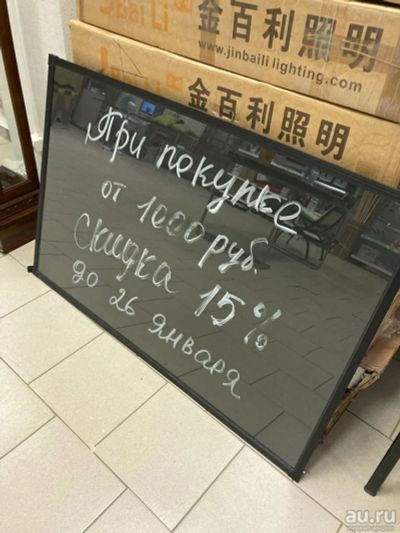 JinBaiLi 金百利照明
www.jinbaililighting.com
金百利照明
При покупке
от 1000 руб.
скидка 15%
до 26 января
au.ru